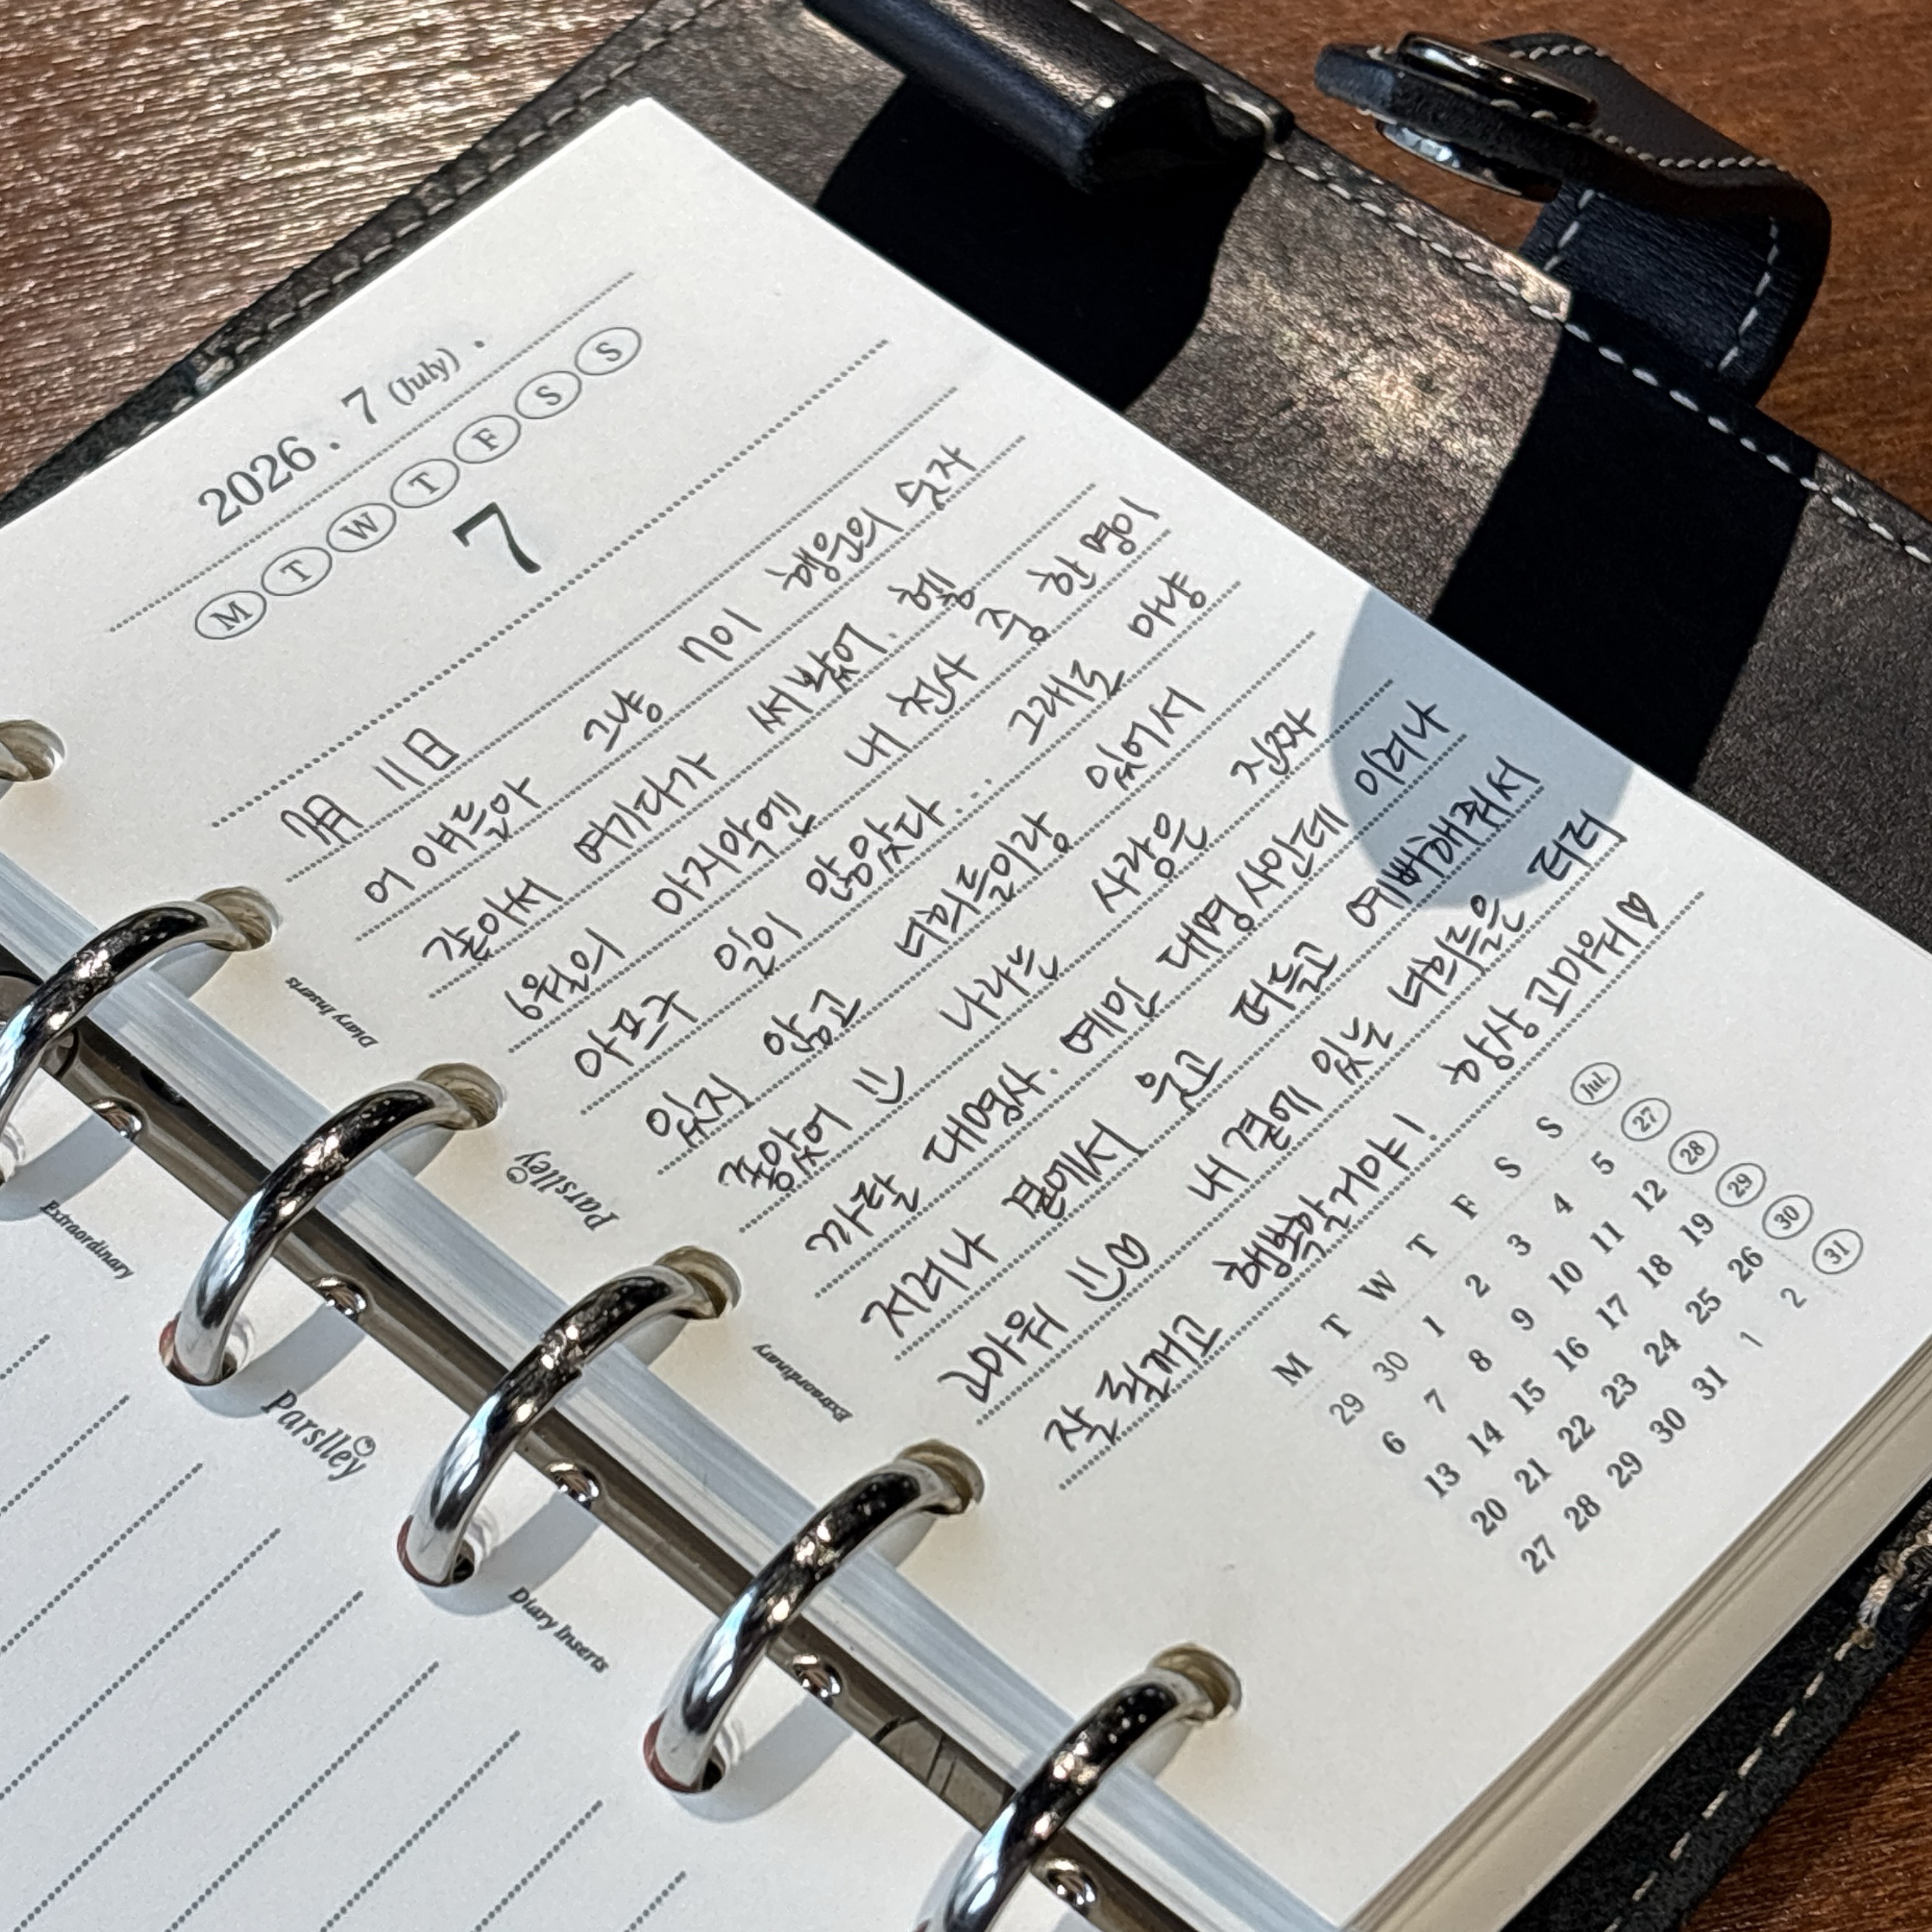 2026. 7 (July).
M T W T F S S
7
7月 11日
어 얘들아 그냥 7이 행운의 숫자
같아서 여기다가 써봤어. 헿
6월의 마지막엔 내 천사 중 한 명이
아프구 일이 많았다... 그래도 마냥
잃지 않고 너희들이랑 있어서
좋았어 :) 나라는 사람은 진짜
까탈 대명사. 예민 대명사인데 이러나
저러나 곁에서 웃고 떠들고 예뻐해줘서
고마워 :)♡ 내 곁에 있는 너희들은 더더
잘 될꺼고 행복할거야! 항상 고마워♡
Diary Inserts
Parslley
Extraordinary
JUL.
M T W T F S S
29 30 1 2 3 4 5 27
6 7 8 9 10 11 12 28
13 14 15 16 17 18 19 29
20 21 22 23 24 25 26 30
27 28 29 30 31 1 2 31
Extraordinary
Parslley
Diary Inserts